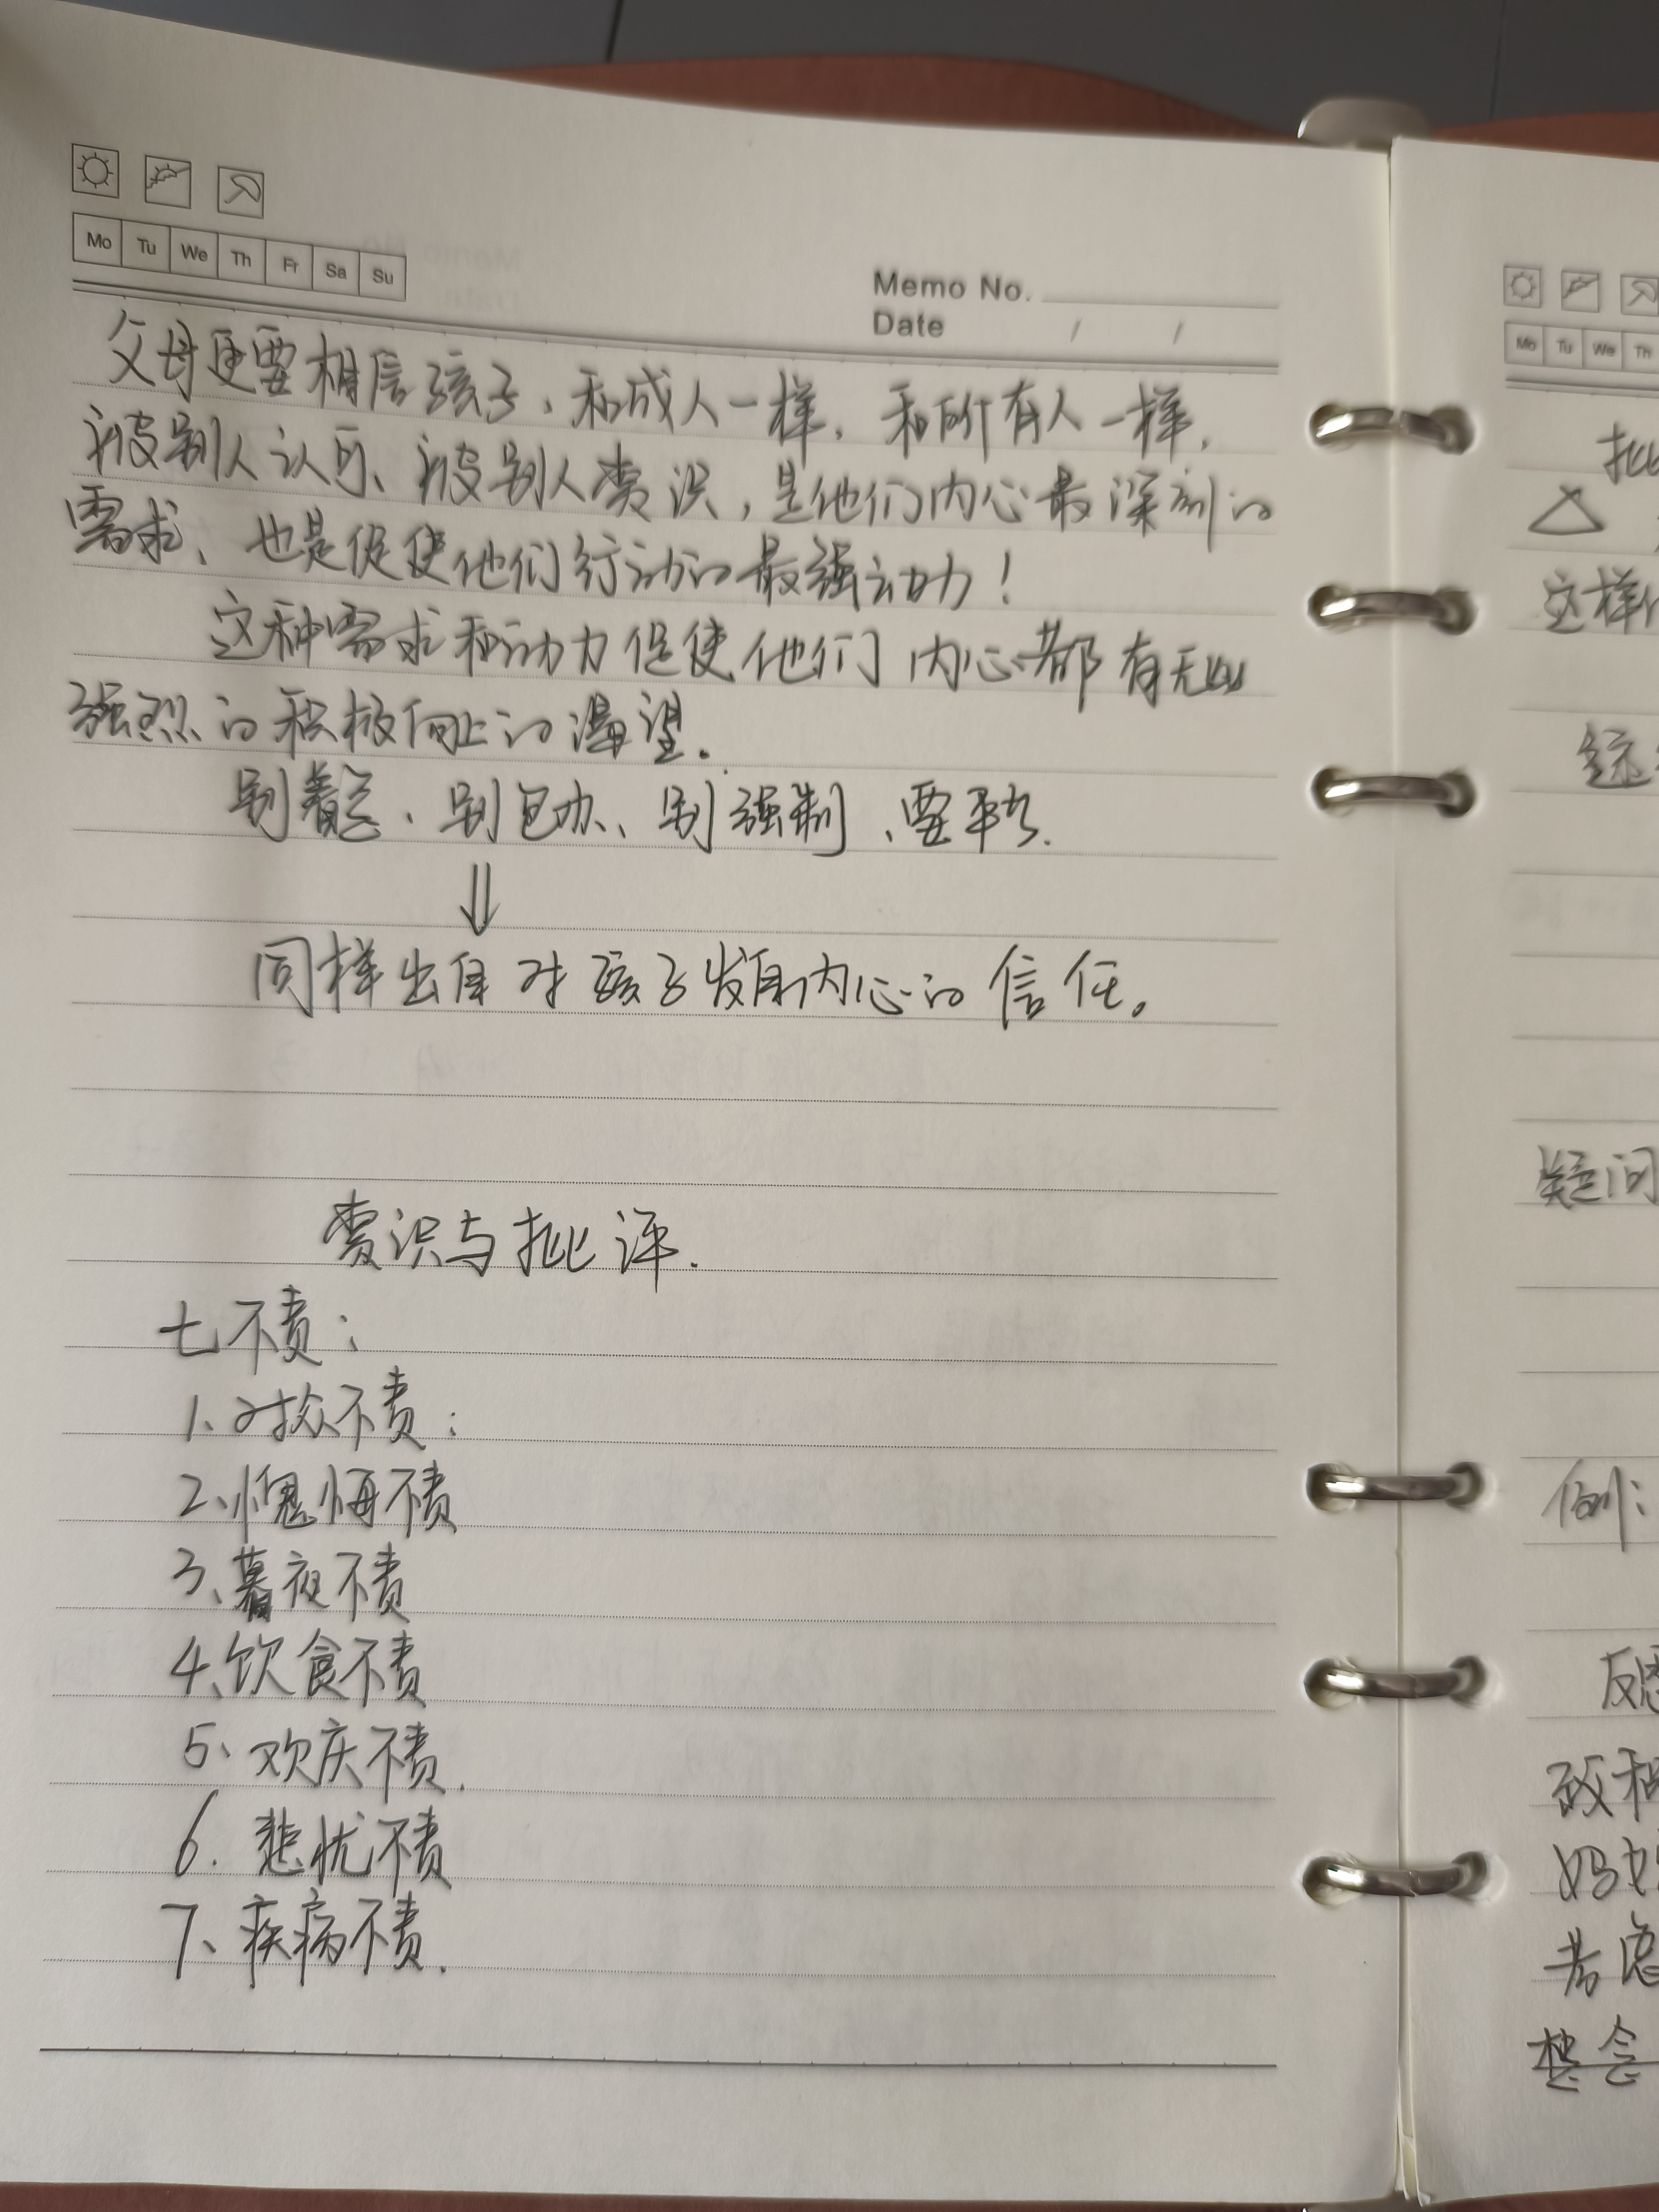 Mo Tu We Th Fr Sa Su
Memo No.
Date / /
父母更要相信孩子、和成人一样，和所有人一样，
被别人认可、被别人赏识，是他们内心最深刻的
需求、也是促使他们行动的最强动力！
这种需求和动力促使他们内心都有无比
强烈的积极向上的渴望.
别着急、别包办、别强制、要平等.
⇓
同样出自对孩子发自内心的信任。
赏识与批评.
七不责：
1、对众不责：
2、愧悔不责
3、暮夜不责
4、饮食不责
5、欢庆不责.
6. 悲忧不责
7、疾病不责.
Mo Tu We Th
批
△
这样
疑问
例：
反
致
妈
考虑
想会